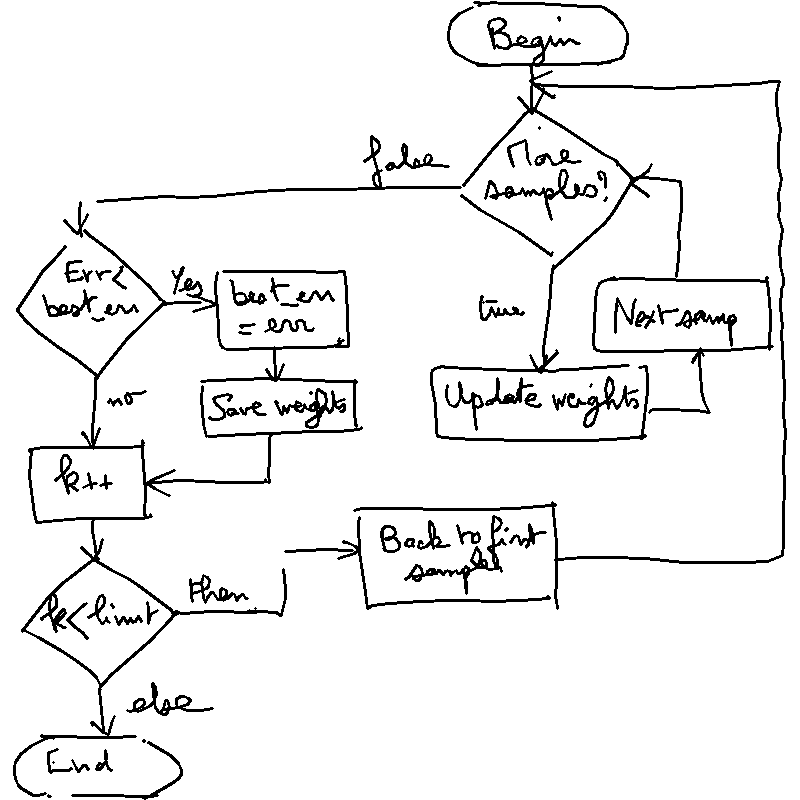 Begin
More
samples?
false
true
Update weights
Next samp
Err<
best_err
Yes
best_err
= err
Save weights
no
k++
k<limit
then
Back to first
sample
else
End